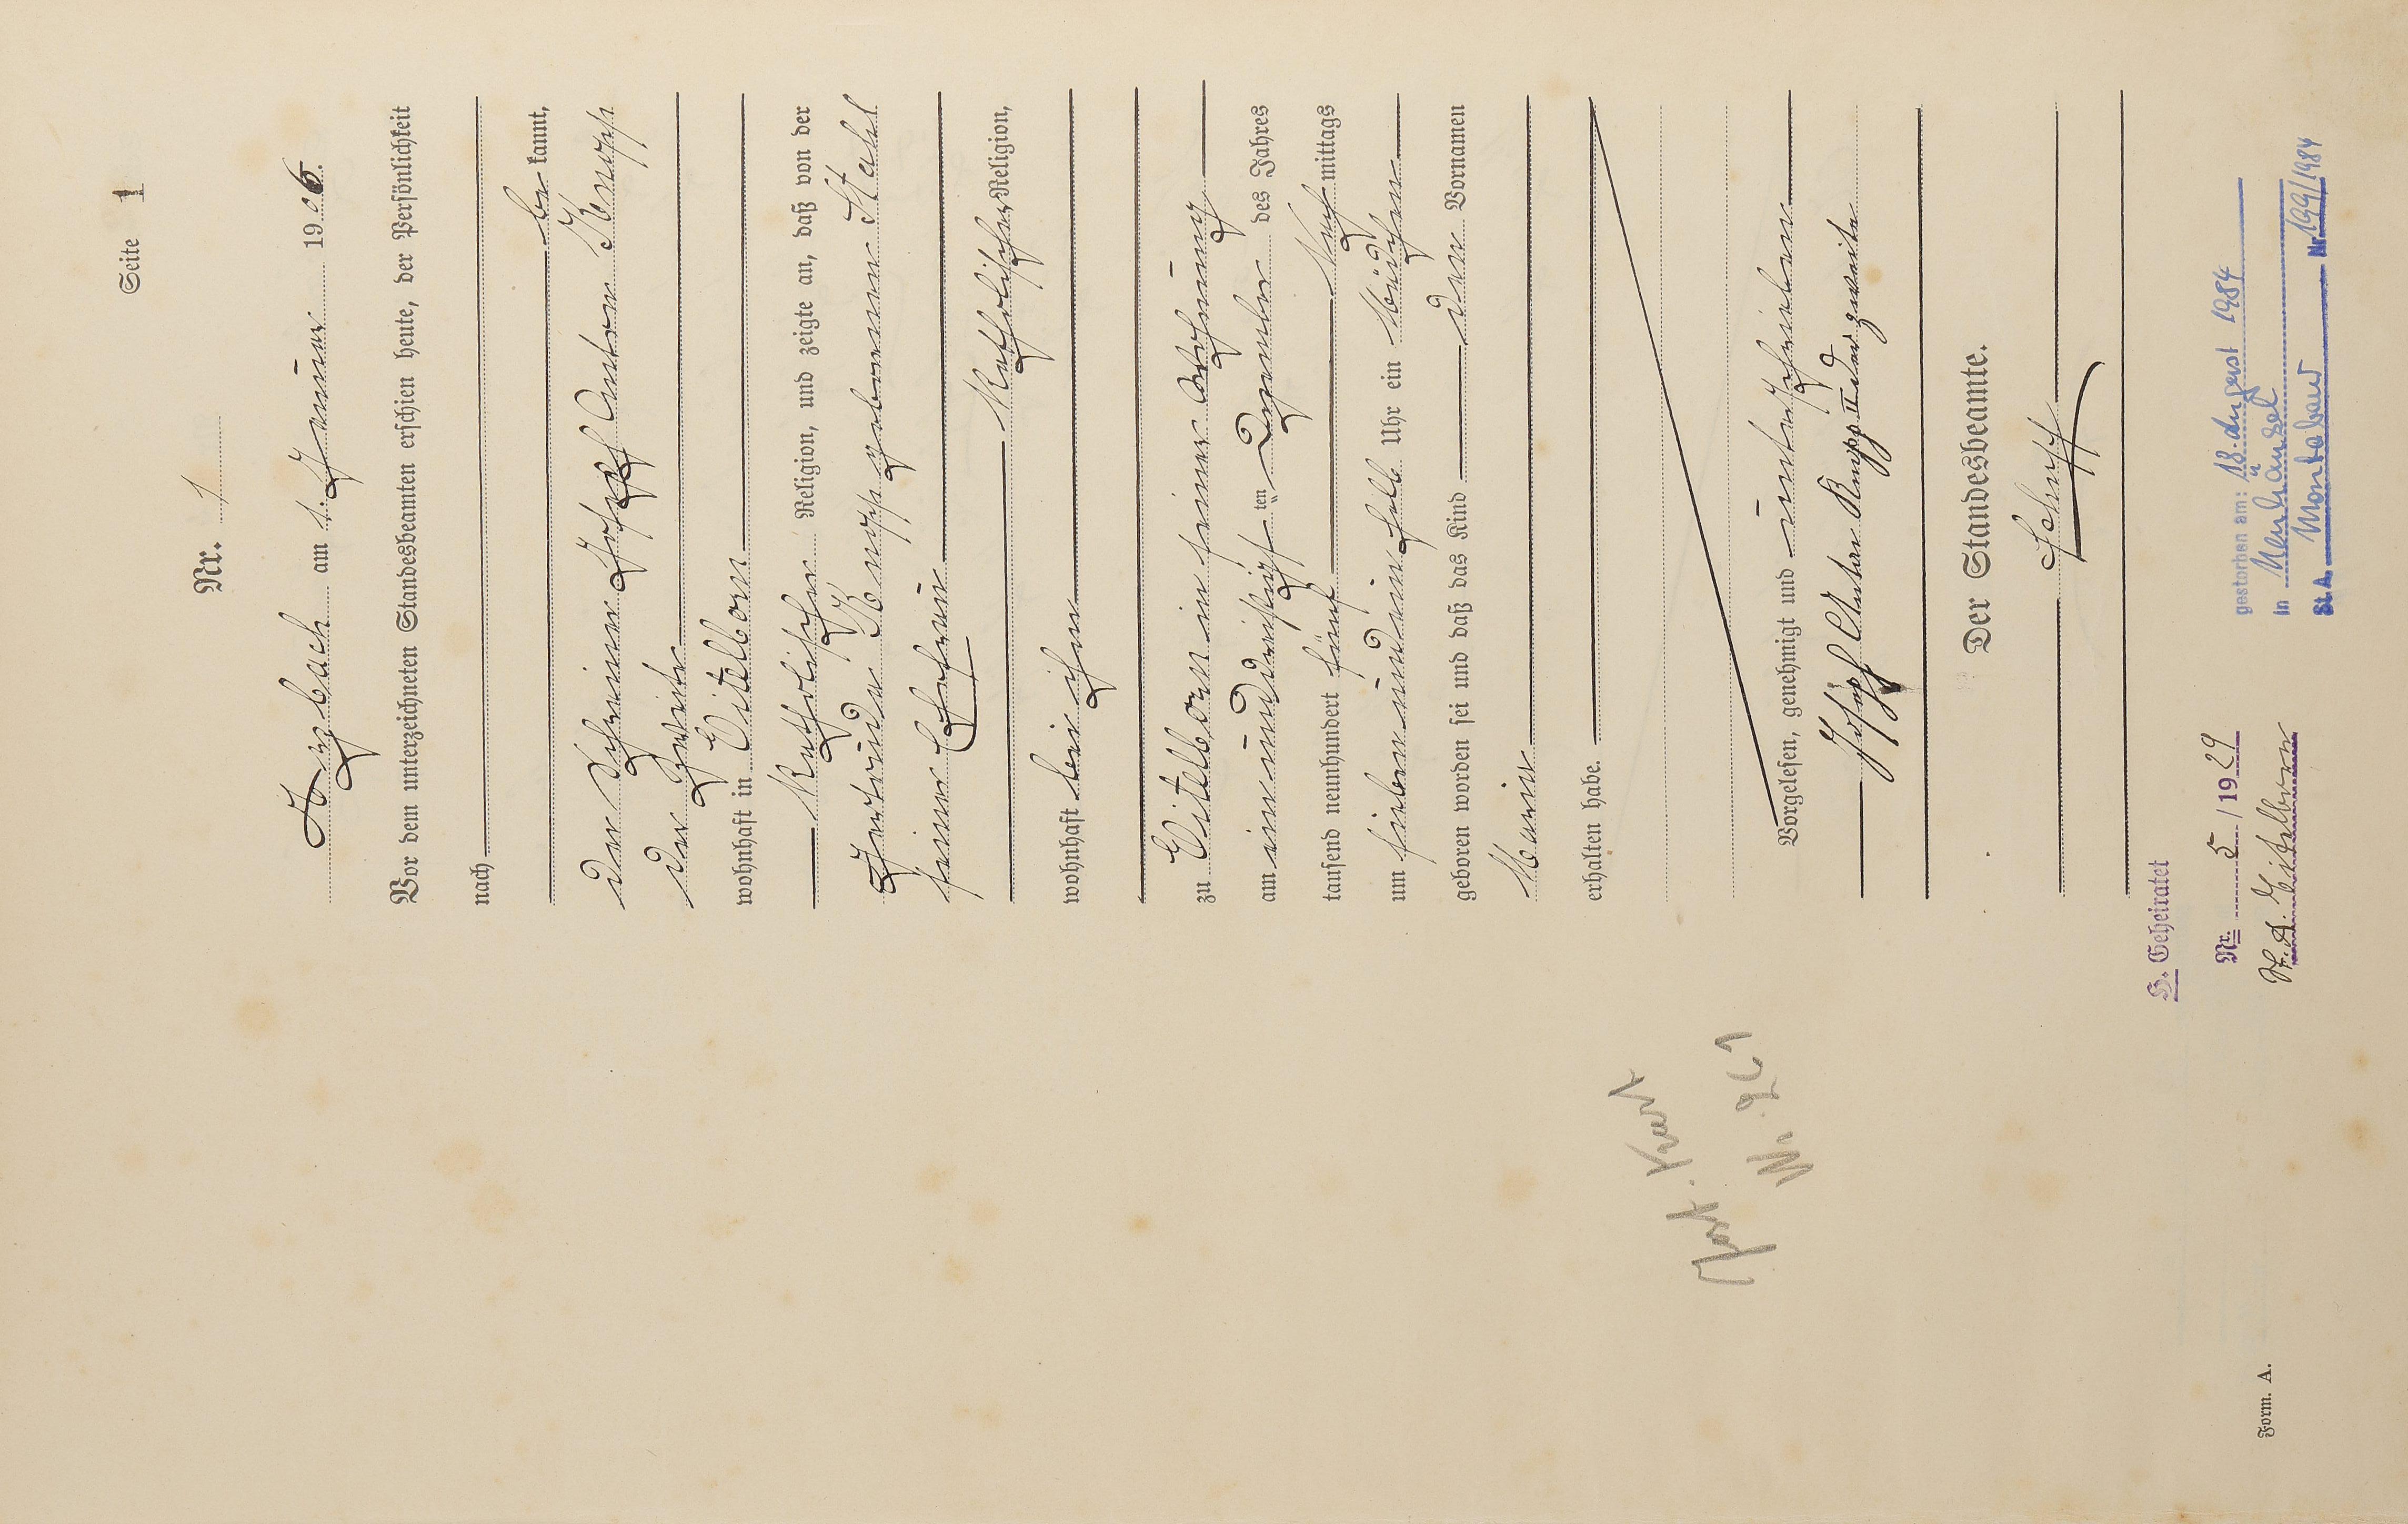 Seite 1
Nr. 1
Arzbach am 1. Januar 1906.
Vor dem unterzeichneten Standesbeamten erschien heute, der Persönlichkeit
nach
be kannt,
der Schreiner Joseph Anton Knopp
der Zweite
wohnhaft in Eitelborn
Katholischer Religion, und zeigte an, daß von der
Gertrude Knopp geborenen Stahl
seiner Ehefrau
Katholischer Religion,
wohnhaft bei ihm
zu Eitelborn in seiner Wohnung
am einunddreißigsten Dezember des Jahres
tausend neunhundert fünf Nach mittags
um sieben und ein halb Uhr ein Mädchen
geboren worden sei und daß das Kind den Vornamen
Maria
erhalten habe.
Vorgelesen, genehmigt und unterschrieben
Joseph Anton Knopp II der zweite
Der Standesbeamte.
Schupp
H. Geheiratet
Nr. 5 / 1929
St. A. Eitelborn
gestorben am: 18. August 1984
in Neuhäusel
St. A. Montabaur Nr. 199/1984
Nr. 261
Form. A.